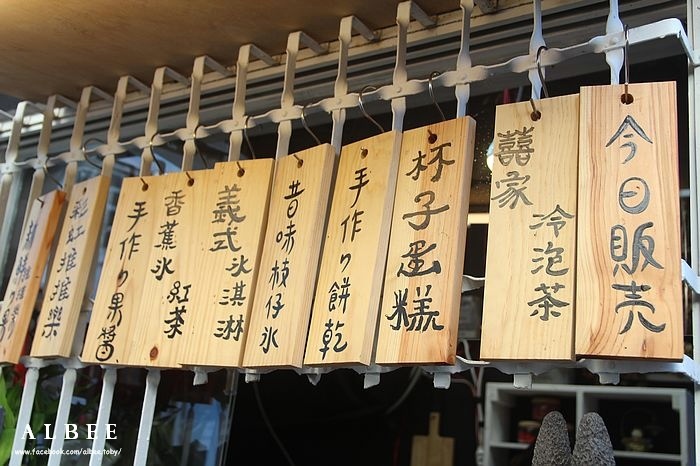 今日販売
囍家
冷泡茶
杯子蛋糕
手作り餅乾
昔味枝仔氷
義式
冰淇淋
香蕉氷
紅茶
手作り果醬
彩虹推推樂
ALBEE
www.facebook.com/albee.toby/